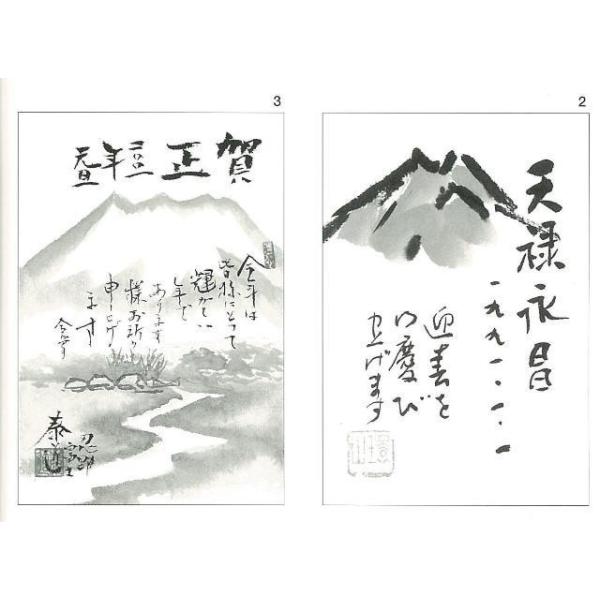 2
天禄永昌
一九九一・一・一
迎春を
お慶び
上げます
3
賀正
元旦
今年は
皆様にとって
輝かしい
年で
あります
様お祈り
申し上げ
ます
泰道
忍野
富士